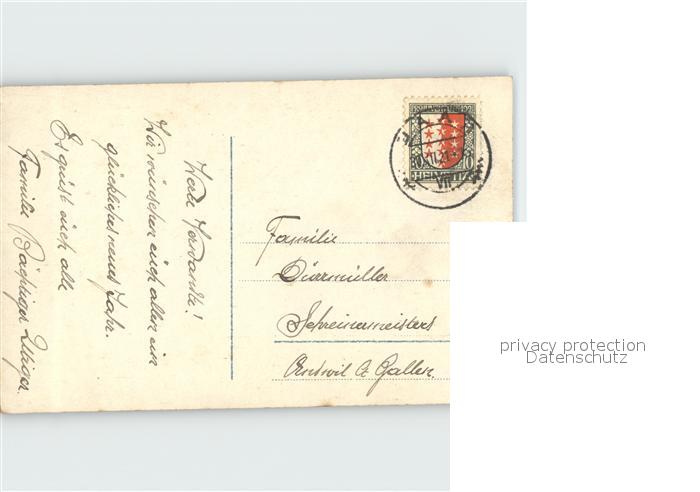 Werte Verwandte!
Wir wünschen euch allen ein
glückliches neues Jahr.
Es grüsst euch alle
Familie Bächtiger
Familie
Dürrmüller
Schreinermeisters
Andwil St. Gallen.
privacy protection
Datenschutz